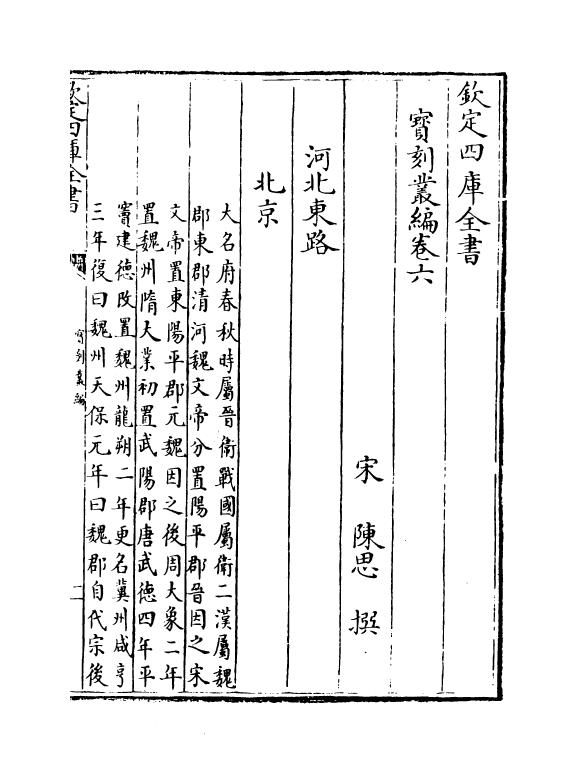 欽定四庫全書
寳刻叢編卷六
宋 陳思 撰
河北東路
北京
大名府春秋時屬晉衛戰國屬衛二漢屬魏
郡東郡清河魏文帝分置陽平郡晉因之宋
文帝置東陽平郡元魏因之後周大象二年
置魏州隋大業初置武陽郡唐武德四年平
竇建德改置魏州龍朔二年更名冀州咸亨
三年復曰魏州天保元年曰魏郡自代宗後
欽定四庫全書
寳刻叢編